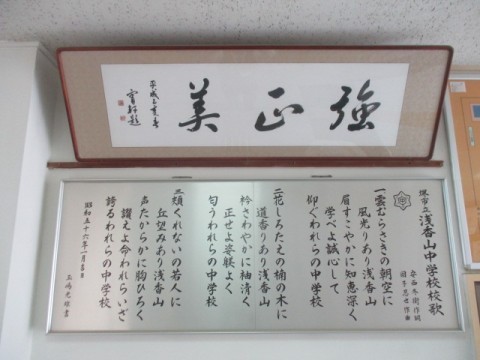 強正美
平成元年春
堺市立浅香山中学校校歌
安西冬衛作詞
一雲むらさきの朝空に
風光りあり浅香山
眉すこやかに知恵深く
学べよ誠心して
仰ぐわれらの中学校
二花しろたえの楠の木に
道香りあり浅香山
衿さわやかに袖清く
正せよ姿躾よく
匂うわれらの中学校
三頬くれないの若人に
丘望みあり浅香山
声たからかに胸ひろく
讃えよ命われらいざ
誇るわれらの中学校
昭和五十六年一月吉日